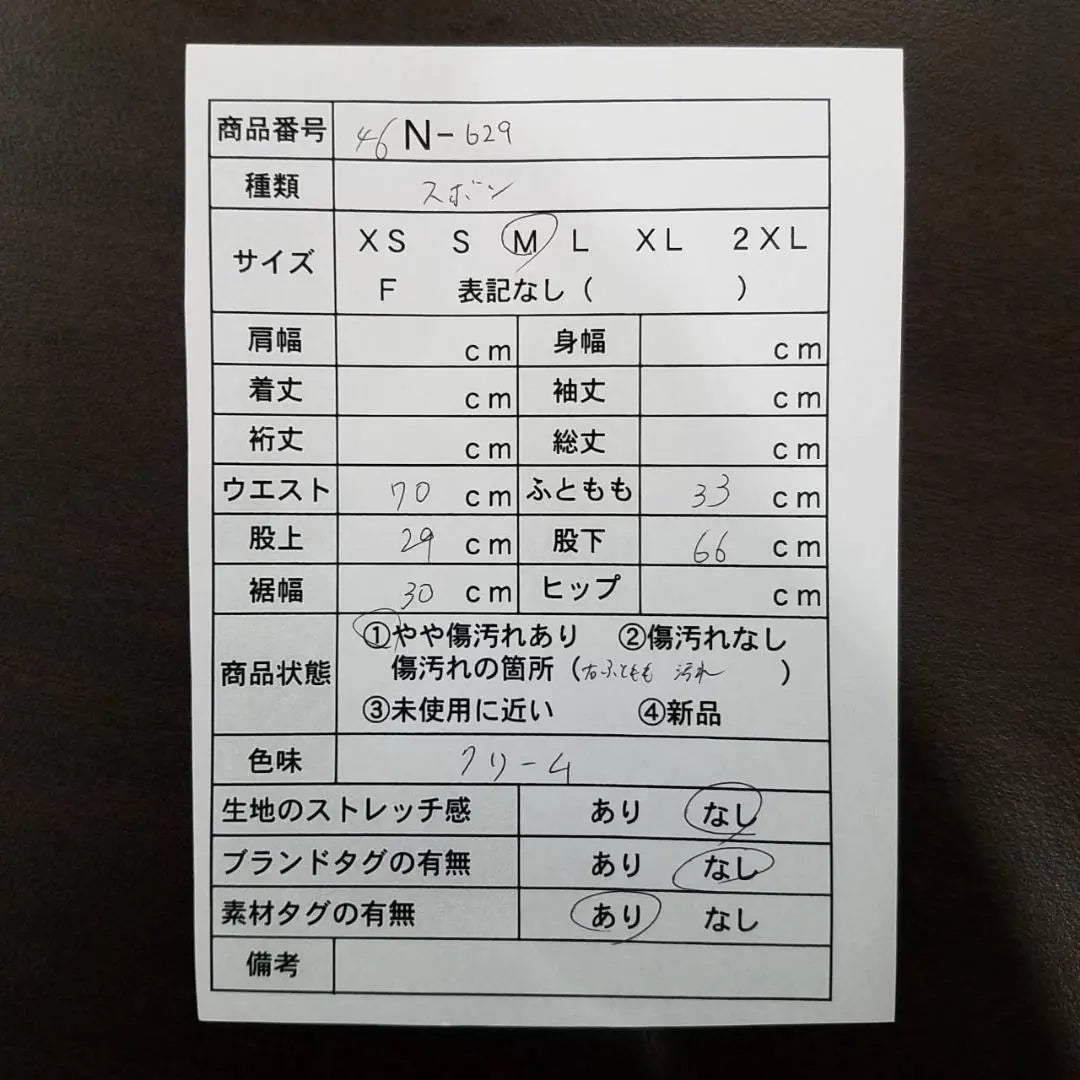 商品番号 46 N-629
種類 ズボン
サイズ XS S M L XL 2XL
F 表記なし( )
肩幅 cm 身幅 cm
着丈 cm 袖丈 cm
裄丈 cm 総丈 cm
ウエスト 70 cm ふともも 33 cm
股上 29 cm 股下 66 cm
裾幅 30 cm ヒップ cm
商品状態 ①やや傷汚れあり ②傷汚れなし
傷汚れの箇所(右ふともも 汚れ )
③未使用に近い ④新品
色味 クリーム
生地のストレッチ感 あり なし
ブランドタグの有無 あり なし
素材タグの有無 あり なし
備考